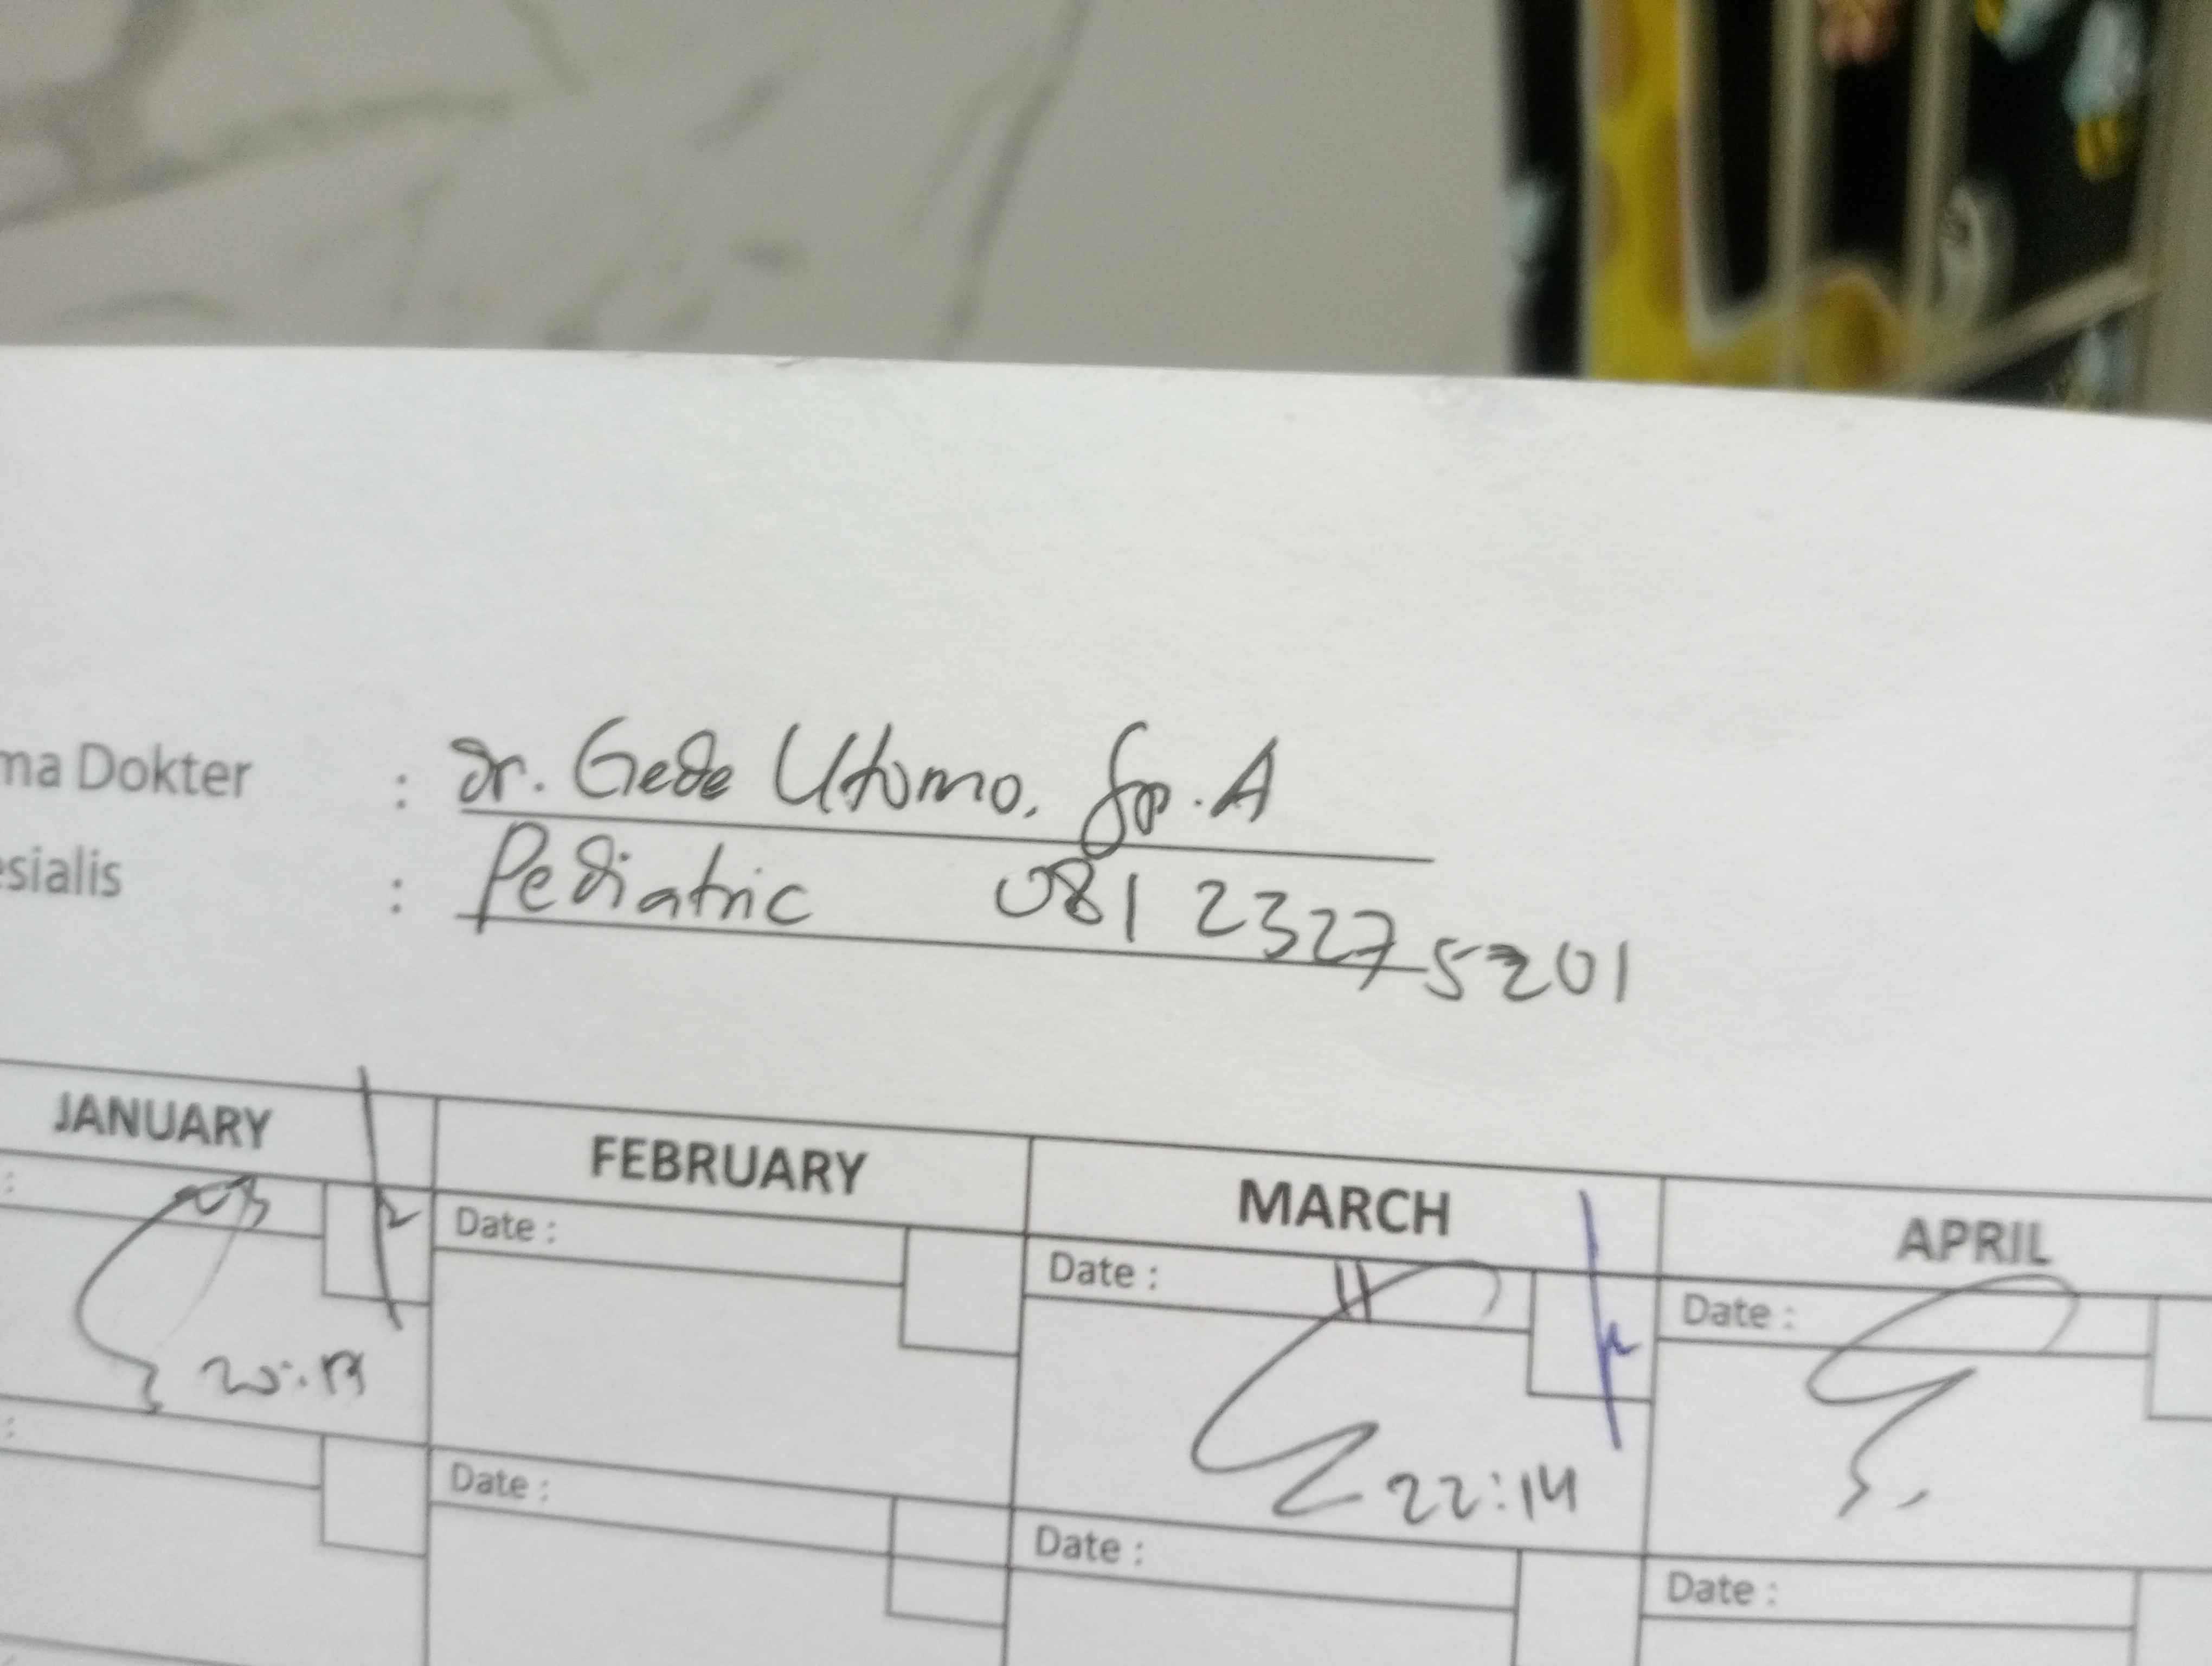 ma Dokter : dr. Gede Utomo. Sp.A
esialis : Pediatric 081 23275201
JANUARY FEBRUARY MARCH APRIL
: 03 Date : Date : 11 Date :
22:14
: Date : Date : Date :